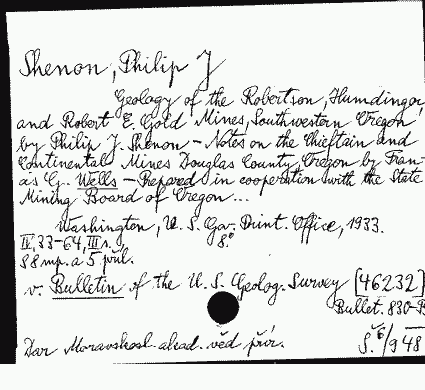 Shenon, Philip J
Geology of the Robertson, Humdinger,
and Robert E. Gold Mines, Southwestern Oregon
by Philip J. Shenon - Notes on the Chieftain and
Continental Mines Douglas County, Oregon by Fran-
cis G. Wells - Prepared in cooperation with the State
Mining Board of Oregon...
Washington, U. S. Gov. Print. Office, 1933.
IV, 33-64, III s. 8°
8 map. a 5 příl.
v. Bulletin of the U. S. Geolog. Survey [46232]
Bullet. 830-B
Dar Moravskosl. akad. věd přír. Š. 6/948